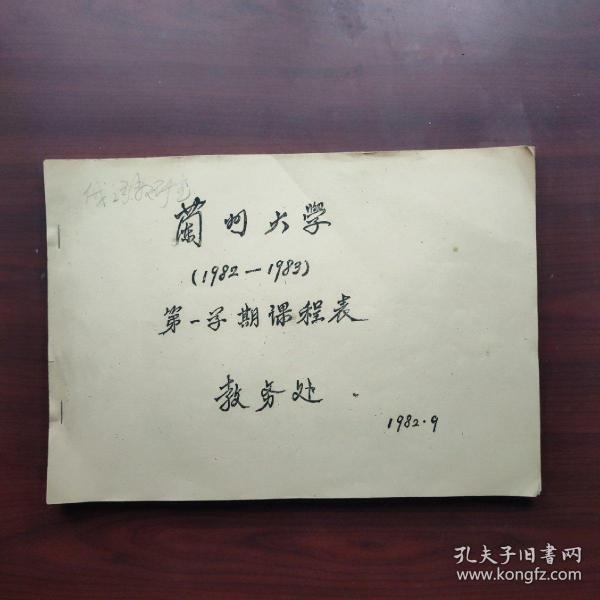 蘭州大學
(1982—1983)
第一学期课程表
教务处
1982.9
孔夫子旧書网
www.kongfz.com